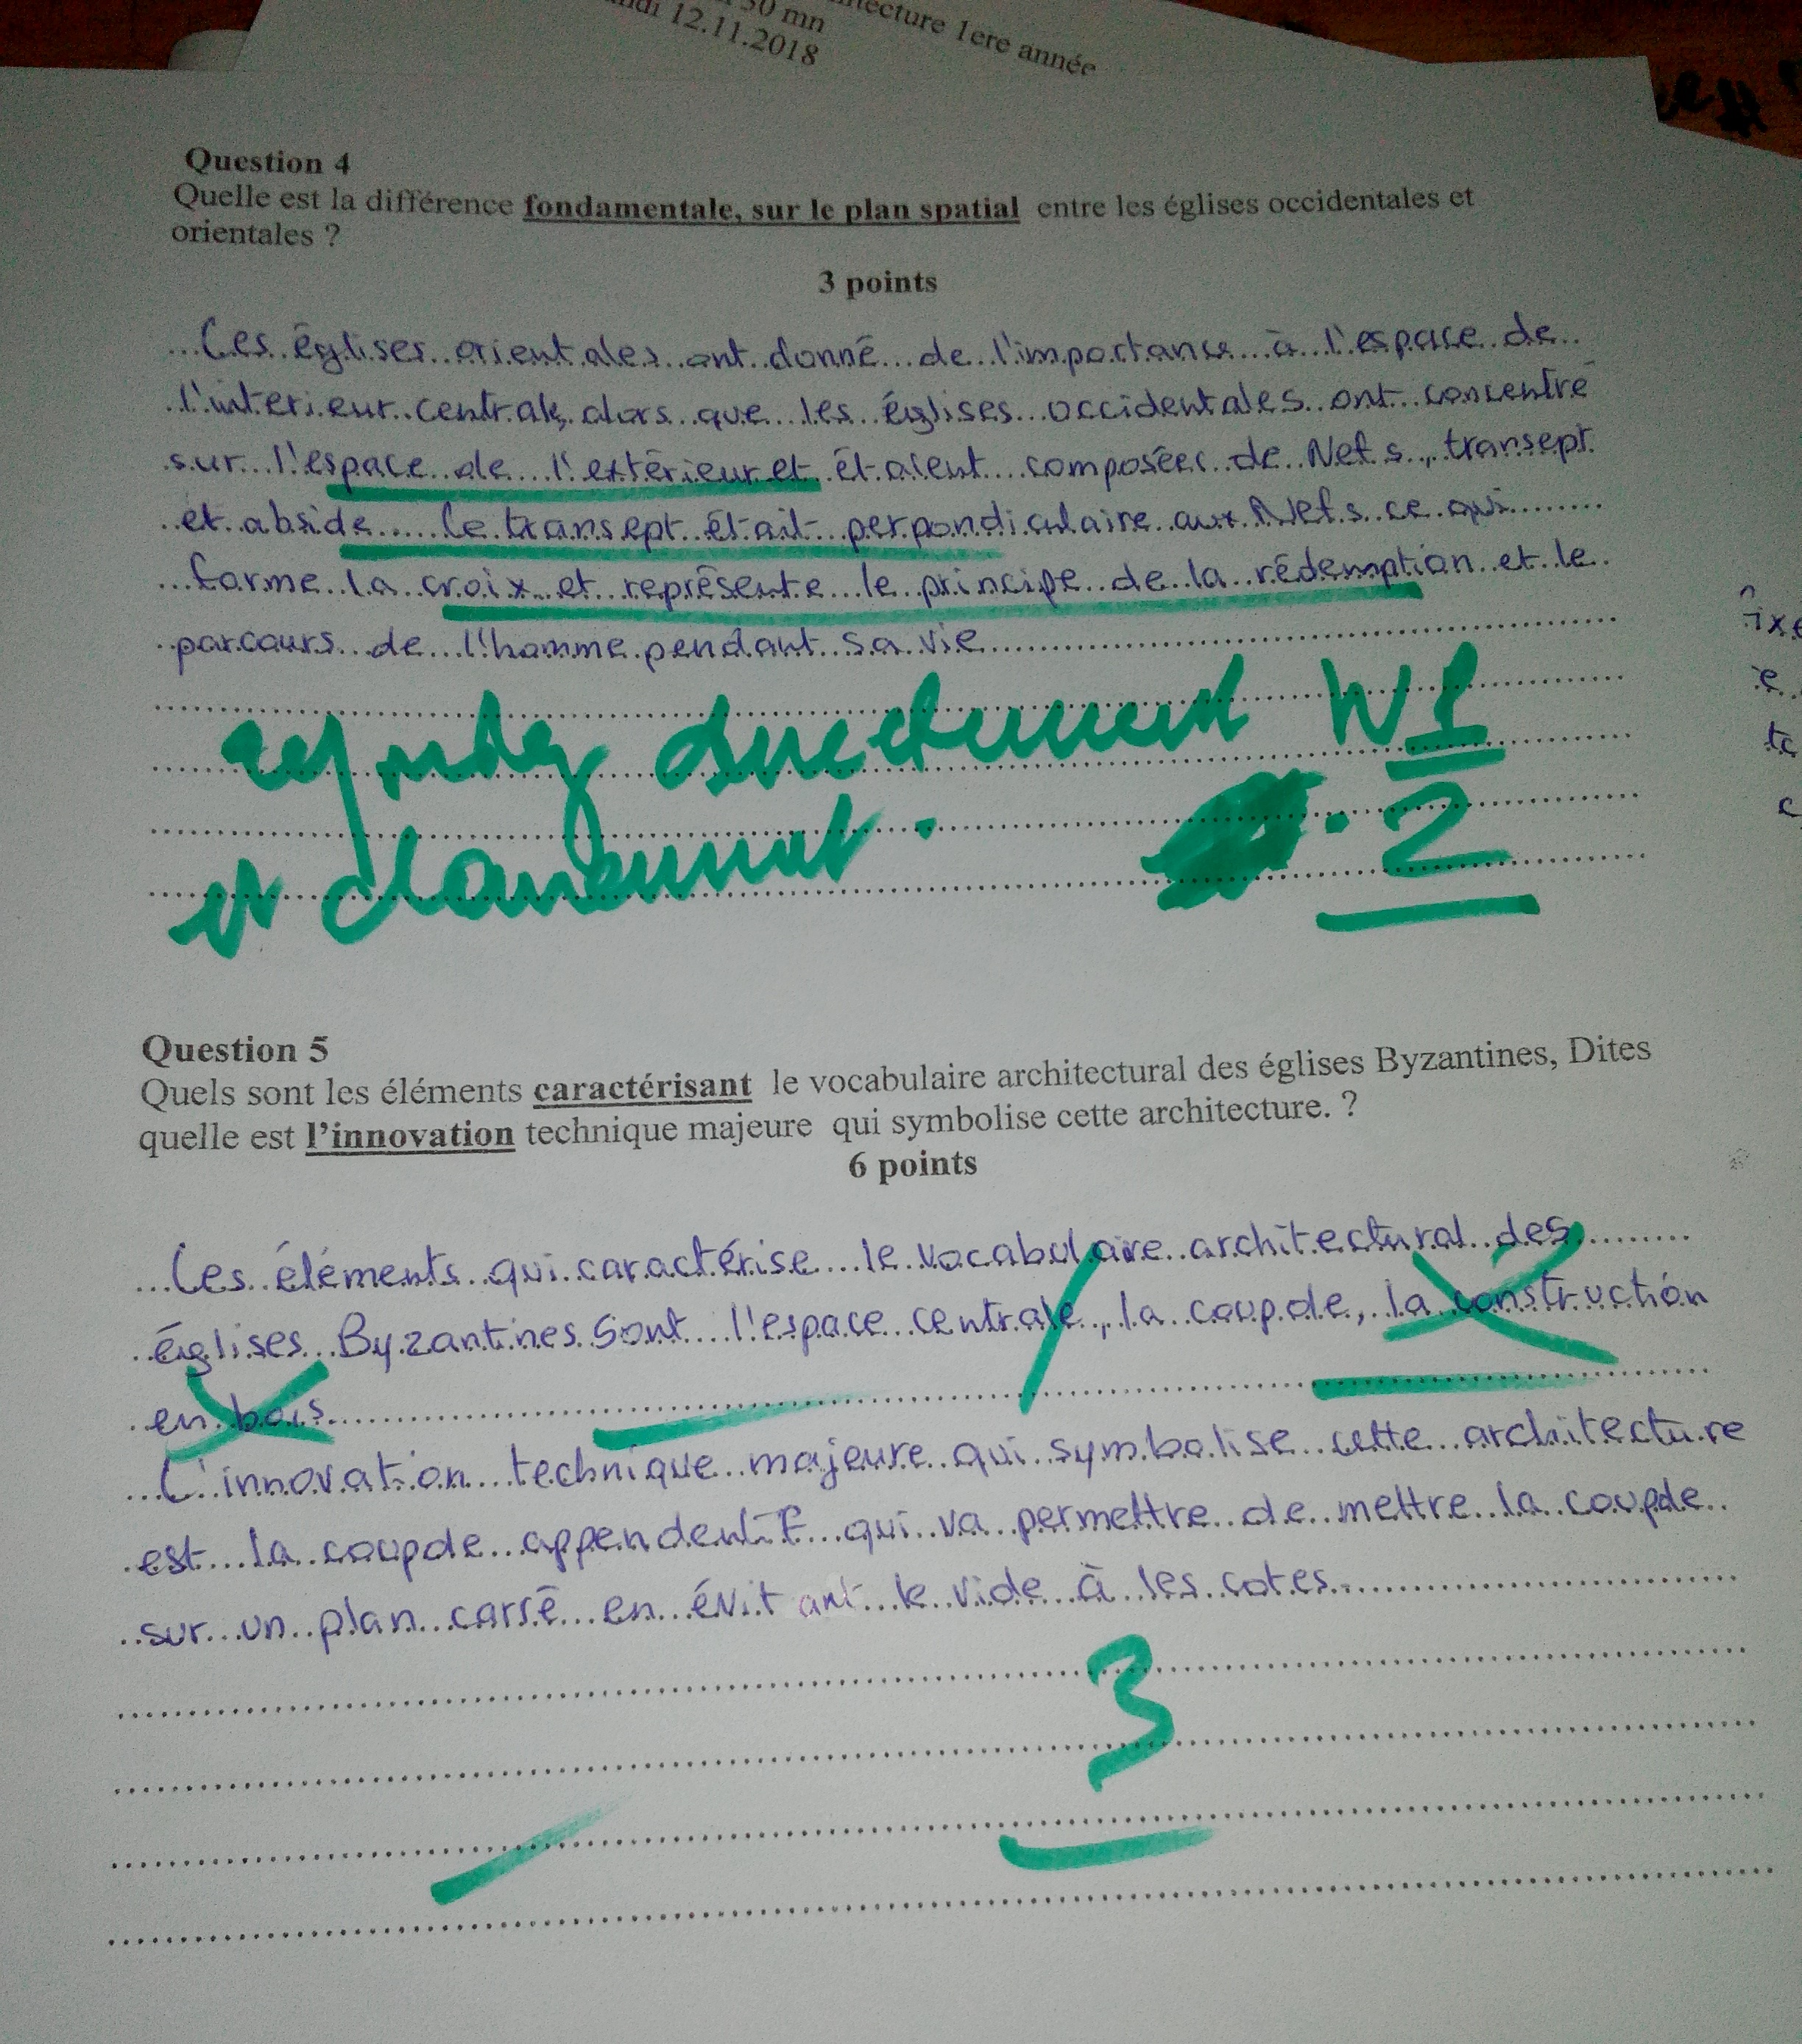 30 mn
12.11.2018
ecture 1ere année
Question 4
Quelle est la différence fondamentale, sur le plan spatial entre les églises occidentales et
orientales ?
3 points
Les églises orientales ont donné de l'importance à l'espace de
l'interieur centrale, alors que les églises occidentales ont concentré
sur l'espace de l'extérieur et étaient composées de Nefs, transept
et abside le transept était perpondiculaire aux Nefs ce qui
forme la croix et représente le principe de la rédemption et le
parcours de l'homme pendant sa vie
directement
et clairement.
2
Question 5
Quels sont les éléments caractérisant le vocabulaire architectural des églises Byzantines, Dites
quelle est l'innovation technique majeure qui symbolise cette architecture. ?
6 points
Les éléments qui caractérise le vocabulaire architectural des
églises Byzantines sont l'espace centrale, la coupole, la construction
en bois
L'innovation technique majeure qui symbolise cette architecture
est la coupole appendentif qui va permettre de mettre la coupole
sur un plan carré en évitant le vide à les cotes
3